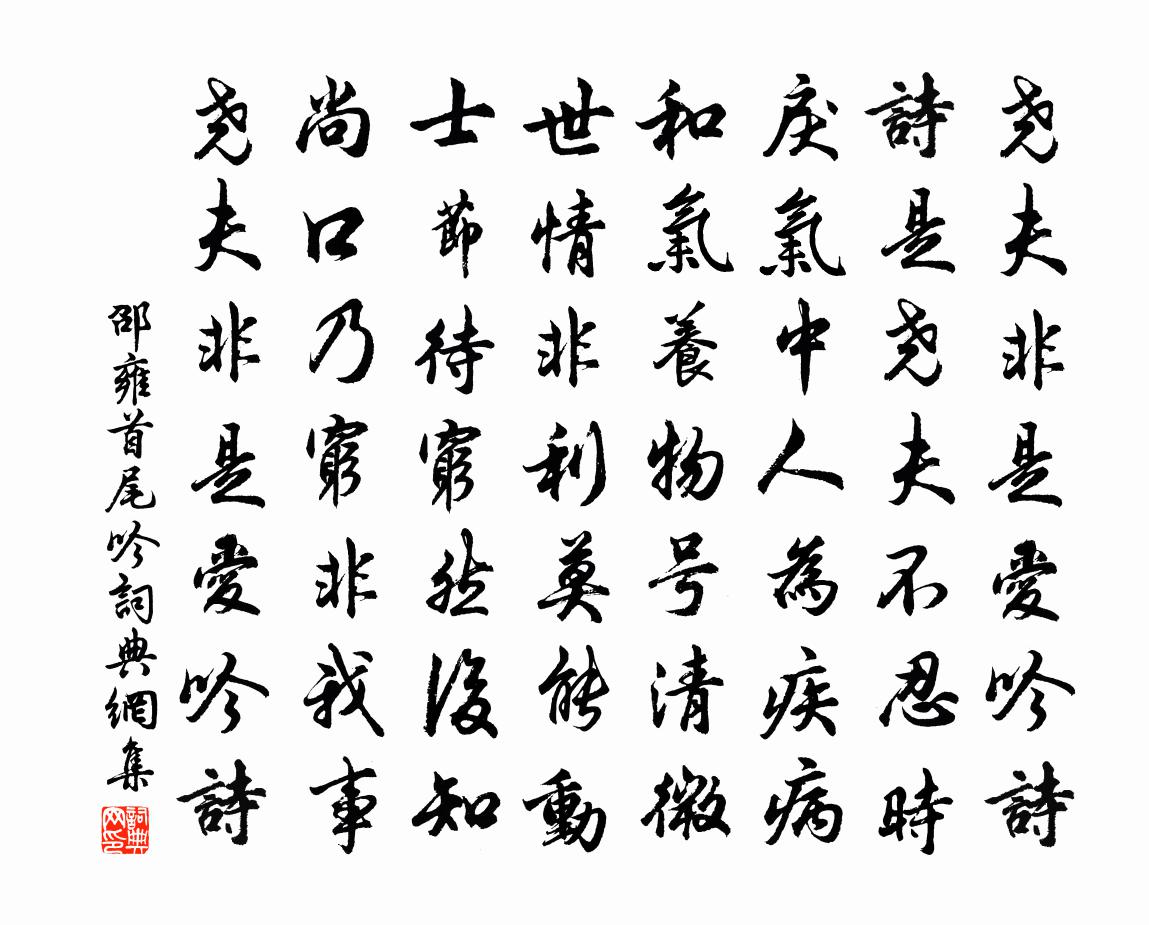 尧夫非是愛吟詩
詩是尧夫不忍時
戾氣中人為疾病
和氣養物号清微
世情非利莫能動
士節待窮然後知
尚口乃窮非我事
尧夫非是愛吟詩
邵雍首尾吟詞典網集
詞典网印